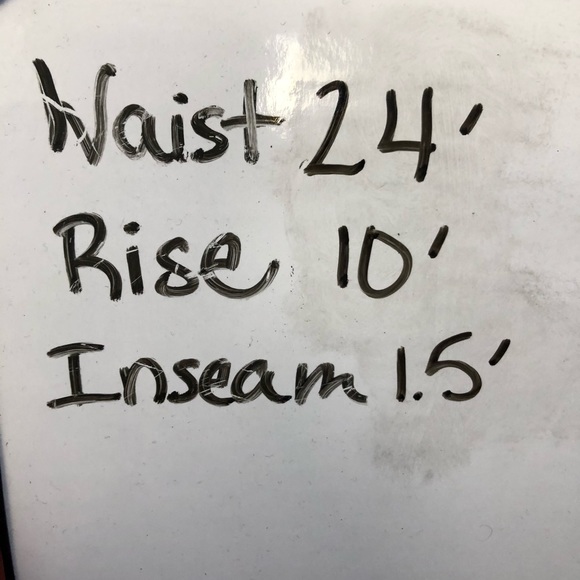 Waist 24'
Rise 10'
Inseam 1.5'